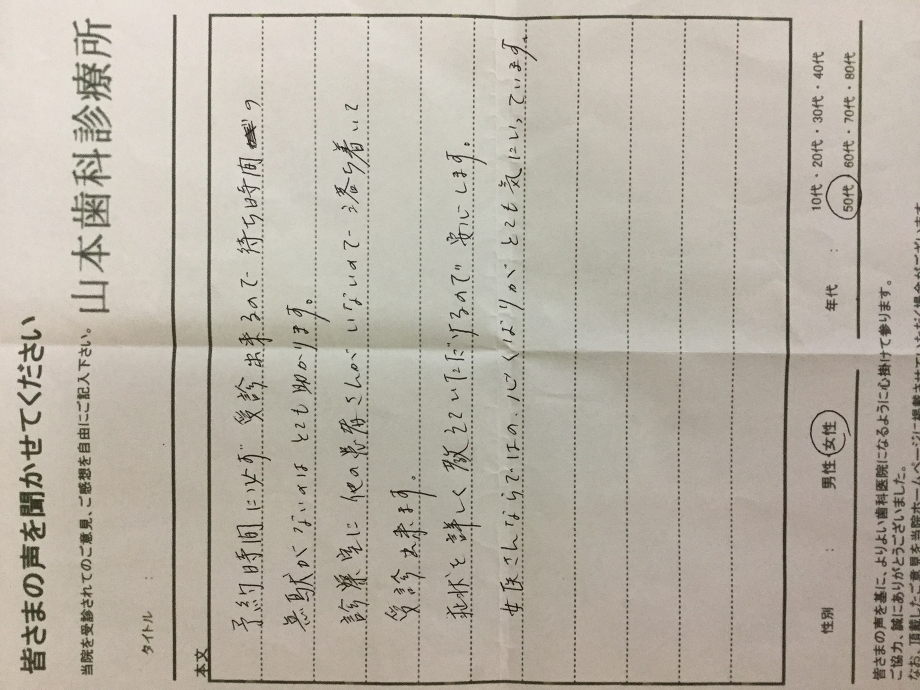 皆さまの声を聞かせてください
当院を受診されてのご意見、ご感想を自由にご記入下さい。
山本歯科診療所
タイトル :
本文
予約時間に必ず 受診出来るので 待ち時間の
無駄がないのは とても助かります。
診療室に 他の患者さんが いないので 落ち着いて
受診出来ます。
症状を詳しく 教えていただけるので 安心します。
女医さんならではの、心くばりが とても気にいっています。
性別 : 男性・女性 年代 : 10代・20代・30代・40代
50代・60代・70代・80代
皆さまの声を基に、よりよい歯科医院になるように心掛けて参ります。
ご協力、誠にありがとうございました。
なお、頂戴したご意見を当院ホームページに掲載させていただく場合がございます。